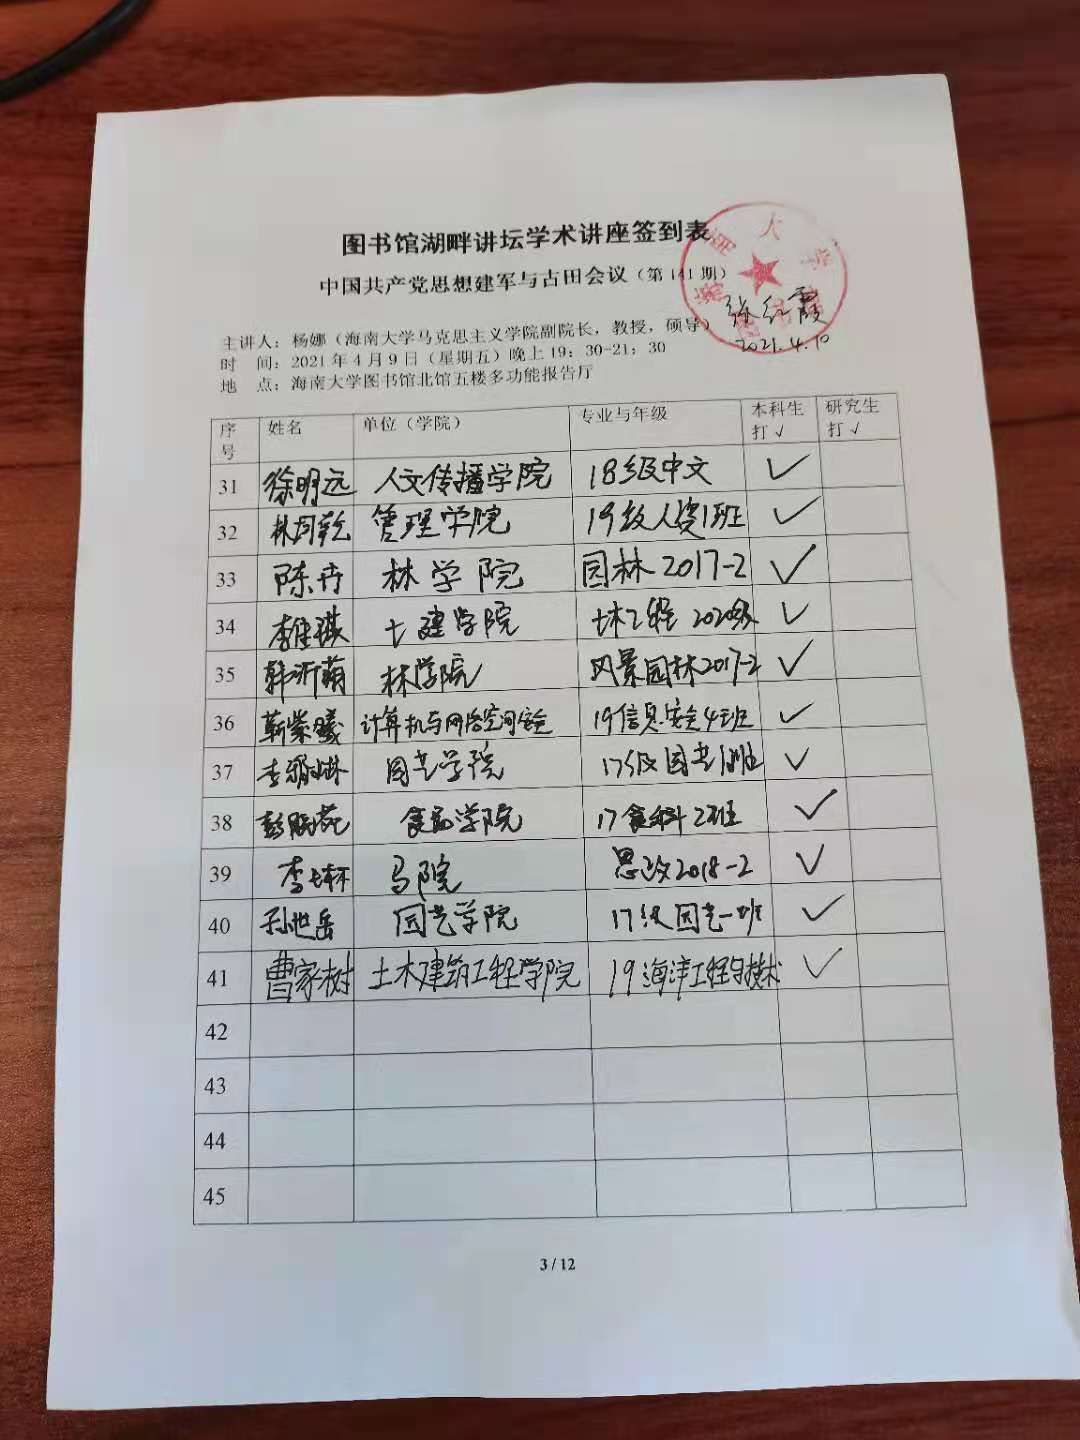 图书馆湖畔讲坛学术讲座签到表
中国共产党思想建军与古田会议（第141期）
主讲人：杨娜（海南大学马克思主义学院副院长，教授，硕导）
时 间：2021年4月9日（星期五）晚上19：30-21：30
地 点：海南大学图书馆北馆五楼多功能报告厅
张红霞
2021.4.10
序号 姓名 单位（学院） 专业与年级 本科生打√ 研究生打√
31 徐明远 人文传播学院 18级中文 √
32 管理学院 19级人资1班 √
33 陈卉 林学院 园林2017-2 √
34 李佳琪 土建学院 土木工程 2020级 √
35 韩沂萌 林学院 风景园林2017-2 √
36 靳紫曦 计算机与网络空间安全 19信息安全4班 √
37 园艺学院 17级园艺1班 √
38 食品学院 17食科2班 √
39 马院 思政2018-2 √
40 孙世岳 园艺学院 17级园艺一班 √
41 曹家树 土木建筑工程学院 19海洋工程与技术 √
42
43
44
45
3 / 12